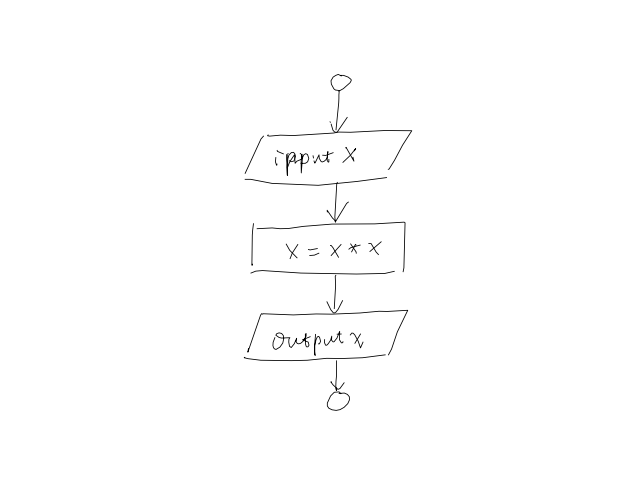 ipput X
X = X * X
output x